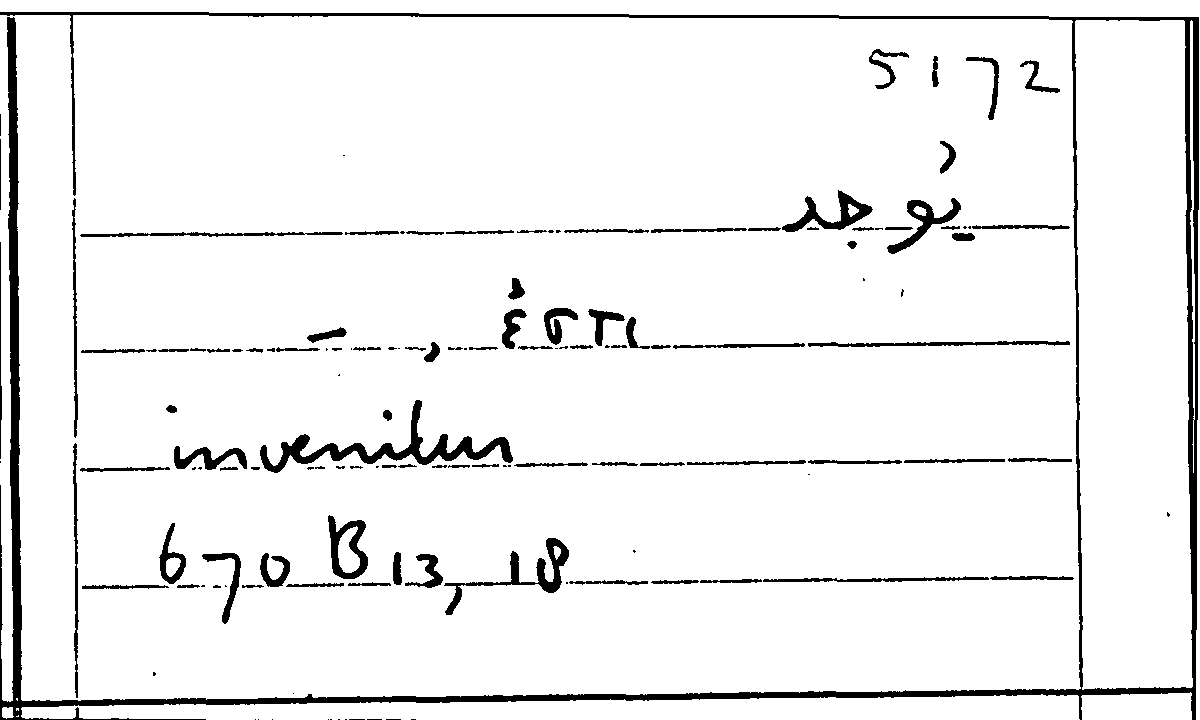 5172
يُوجد
– , ἐστι
invenitur
670 B 13, 18